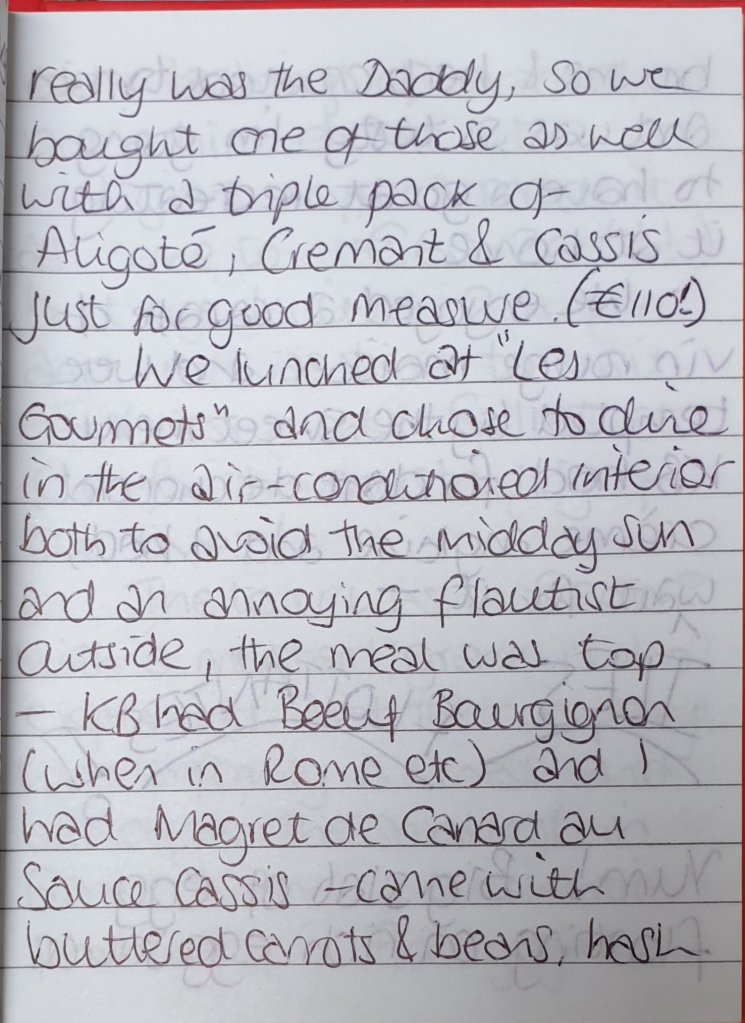 really was the Daddy, so we
bought one of those as well
with a triple pack of
Aligoté, Cremant & Cassis
just for good measure. (€110!)
We lunched at "Les
Gourmets" and chose to dine
in the air-conditioned interior
both to avoid the midday sun
and an annoying flautist
outside, the meal was top
- KB had Boeuf Bourgignon
(when in Rome etc) and I
had Magret de Canard au
Sauce Cassis - came with
buttered carrots & beans, hash